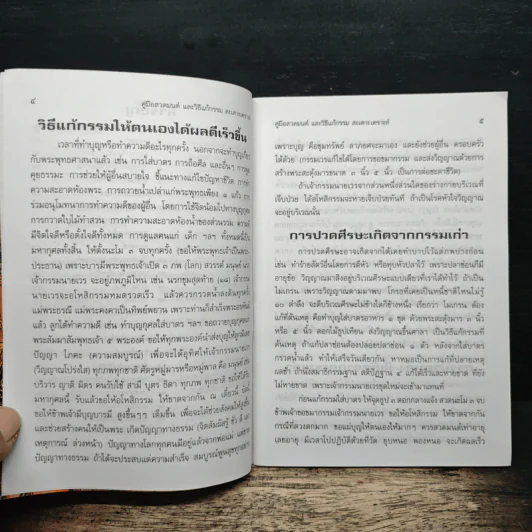 ๔
คู่มือสวดมนต์ และวิธีแก้กรรม สะเดาะเคราะห์
วิธีแก้กรรมให้ตนเองได้ผลดีเร็วขึ้น
เวลาที่ทำบุญหรือทำความดีอะไรทุกครั้ง นอกจากจะทำบุญเกี่ยว
กับพระพุทธศาสนาแล้ว เช่น การใส่บาตร การถือศีล และอื่นๆ การพูด
คุยธรรมะ การช่วยให้ผู้อื่นสบายใจ ชี้แนะทางแก้ไขปัญหาชีวิต การทำ
ความสะอาดห้องพระ การถวายน้ำเปล่าแก่พระพุทธเพียง ๑ แก้ว การ
ร่วมอนุโมทนาการทำความดีของผู้อื่น โดยการใช้จิตน้อมไปทำบุญกุศล
การกวาดใบไม้ทำสวน การทำความสะอาดห้องน้ำของส่วนรวม ความ
มีจิตใจดีหรือตั้งใจดีทั้งหมด การดูแลคนแก่ เด็ก ฯลฯ ทั้งหมดนี้เป็น
มหากุศลทั้งสิ้น ให้ตั้งนะโม ๓ จบทุกครั้ง (ขอให้พระพุทธเจ้าเป็นองค์
ประธาน) เพราะบารมีพระพุทธเจ้าเปิด ๓ ภพ (โลก) สวรรค์ มนุษย์ นรก
เจ้ากรรมนายเวร จะอยู่ภพภูมิไหน เช่น นรกขุมสุดท้าย (๑๘) เจ้ากรรม
นายเวรจะอโหสิกรรมหมดรวดเร็ว แล้วควรกรวดน้ำลงดินทุกครั้ง
แม่พระธรณี แม่พระคงคาเป็นทิพย์พยาน เพราะท่านก็สำเร็จพระอรหันต์
แล้ว ลูกได้ทำความดี เช่น ทำบุญกุศลใส่บาตร ฯลฯ ขอถวายบุญแด่
พระสัมมาสัมพุทธเจ้า ๕ พระองค์ ขอให้ทุกพระองค์นำส่งบุญให้ลูกมี
ปัญญา โภคะ (ความสมบูรณ์) เพื่อจะได้อุทิศให้เจ้ากรรมนายเวร
(วิญญาณโปร่งใส) ทุกภพทุกชาติ ศัตรูหมู่มารหรือหมู่พาล คือ มนุษย์
บริวาร ญาติ มิตร คนรับใช้ สามี บุตร ธิดา ทุกภพ ทุกชาติ ขอให้ได้รับ
มหากุศลนี้ รับแล้วขอให้อโหสิกรรม ให้ขาดจากกัน ณ เดี๋ยวนี้
ขอให้ข้าพเจ้ามีบุญบารมี สูงขึ้นๆๆ เติมขึ้น เพื่อจะได้ช่วยสังคมให้สูงขึ้น
และช่วยสร้างคนให้เป็นพระ เกิดปัญญาทางธรรม (จิตสัมผัสรู้ ชั่ว ดี
เหตุการณ์ ล่วงหน้า) ปัญญาทางโลกทุกคนมีอยู่แล้วจากพ่อแม่
ปัญญาทางธรรม ถ้าได้จะประสบแต่ความสำเร็จ สมบูรณ์พูนสุขทุกอย่าง
คู่มือสวดมนต์ และวิธีแก้กรรม สะเดาะเคราะห์
๕
เพราะบุญ คือขุมทรัพย์ ลาภยศจะมาเอง และยังช่วยผู้อื่น ครอบครัว
ได้ด้วย (กรรมเวรแก้ไขได้โดยการขอขมากรรม และส่งวิญญาณด้วยการ
สร้างพระสะดุ้งมารขนาด ๓ นิ้ว ๕ นิ้ว เป็นการต่อชะตาชีวิต)
ถ้าเจ้ากรรมนายเวรจากส่วนหนึ่งส่วนใดของร่างกายบริเวณที่
เจ็บป่วย ได้อโหสิกรรมจะหายเจ็บป่วยทันที ถ้าเป็นโรคหัวใจวิญญาณ
จะอยู่บริเวณนั้น
การปวดศีรษะเกิดจากกรรมเก่า
การปวดศีรษะอาจเกิดจากได้เคยทำบาปไว้แต่ภพปางก่อน
เช่น ทำร้ายสัตว์อื่นโดยการตีหัว หรือทุบหัวปลาไว้ เพราะปลาช่อนก็มี
อายุขัย วิญญาณมาสิงอยู่บริเวณศีรษะบอบเดียวที่เราได้ทำไว้ ถ้าเป็น
ไมเกรน เพราะวิญญาณตามมาพบ โกรธที่เคยเป็นหนี้ชาติไหนไม่รู้
๑๐ ดำดึง จะตีบริเวณศีรษะไม่ข้างใดก็ข้างหนึ่ง เรียกว่า ไมเกรน ต้อง
แก้ที่ต้นเหตุ คือทำบุญใส่บาตรอาหาร ๑ ชุด ด้วยพระสะดุ้งมาร ๓ นิ้ว
หรือ ๕ นิ้ว ดอกไม้ธูปเทียน ส่งวิญญาณขึ้นศาลา เป็นวิธีแก้กรรมที่
ต้นเหตุ ถ้าแก้ปลาช่อนต้องปล่อยปลาช่อน ๑ ตัว หลังจากใส่บาตร
กรวดน้ำแล้ว ทำให้เสร็จวันเดียวกัน หาหมอเป็นการแก้ที่ปลายเหตุ
ผลช้า ถ้านั่งสมาธิกรรมฐาน สติปัฏฐาน ๔ แก้ได้เร็วและหายขาด ที่ยัง
ไม่หายขาด เพราะเจ้ากรรมนายเวรชุดใหม่จะเข้ามาแทนที่
ก่อนแก้กรรมใส่บาตร ให้จุดธูป ๓ ดอกกลางแจ้ง สวดนะโม ๓ จบ
ข้าพเจ้าขอขมากรรมเจ้ากรรมนายเวร ขอให้อโหสิกรรม ให้ขาดจากกัน
กรณีที่ดวงตกมาก ขอแผ่บุญให้ตนเองให้มากๆ ควรสวดมนต์เท่าอายุ
เลยอายุ มีเวลาไปปฏิบัติด้วยที่วัด ยุบหนอ พองหนอ จะเกิดผลเร็ว